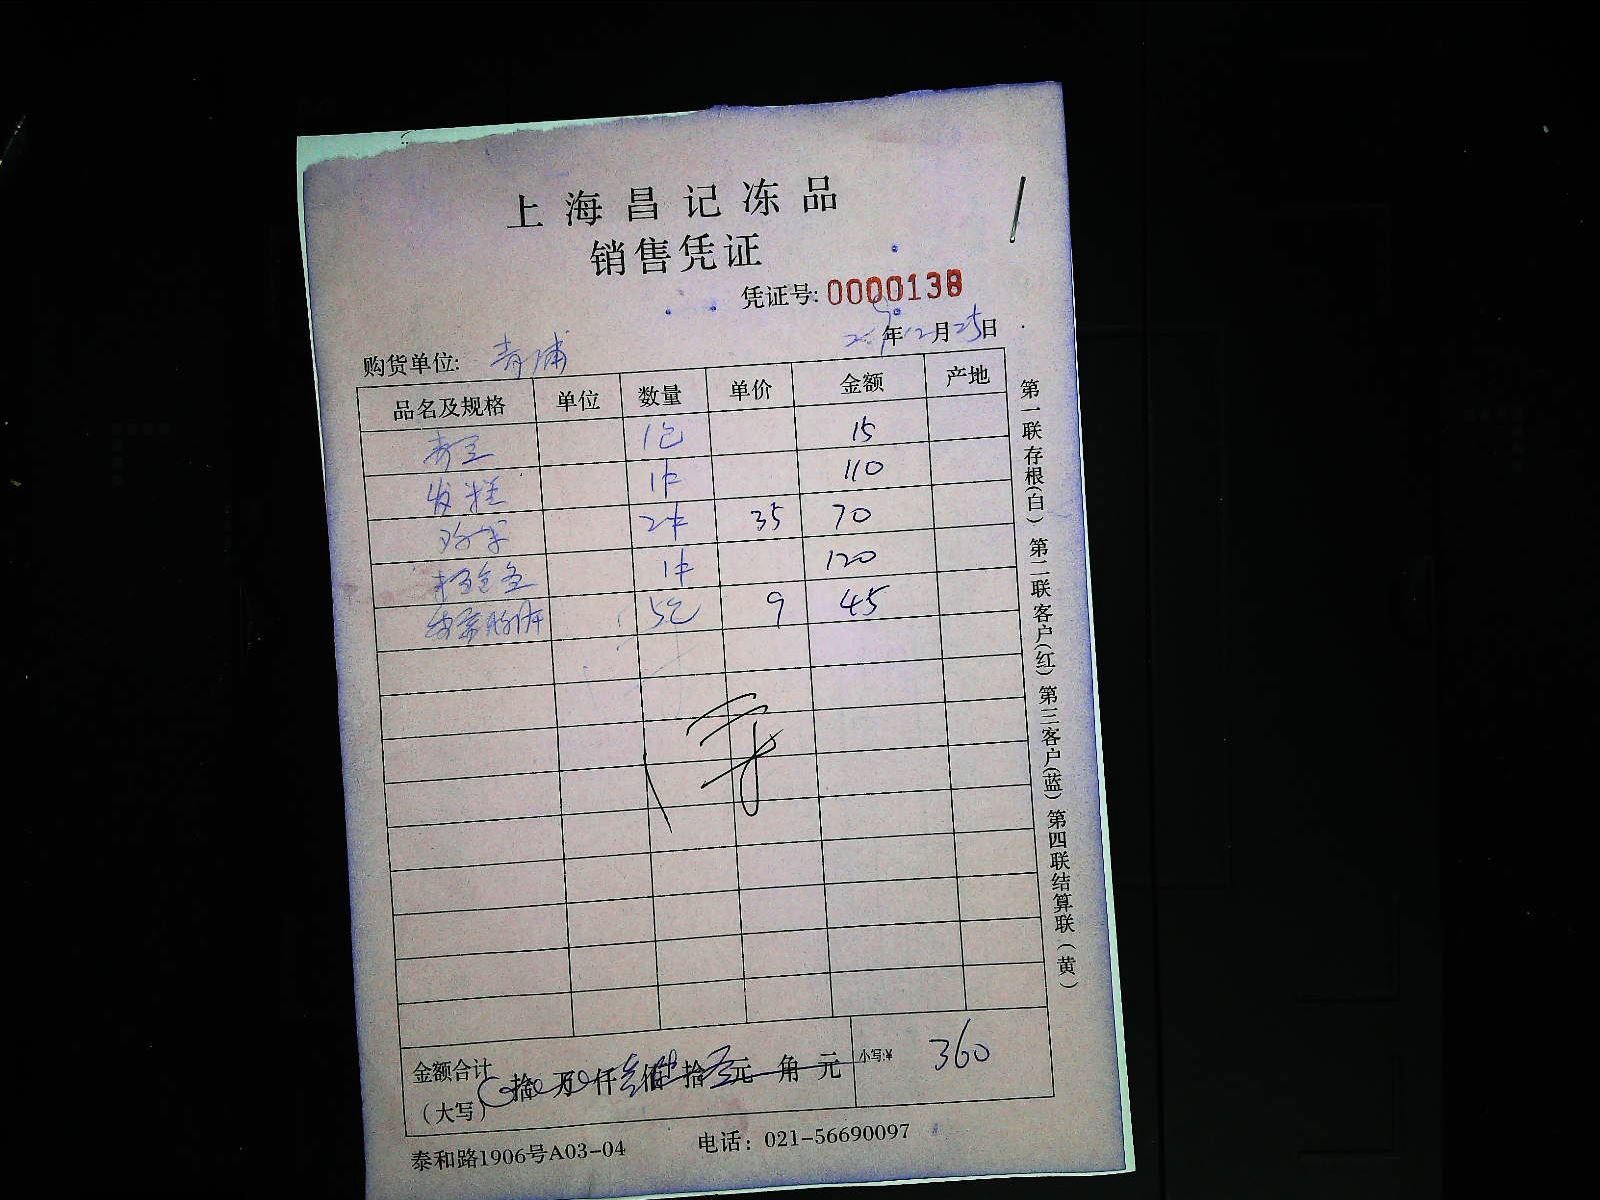 上海昌记冻品
销售凭证
凭证号: 0000138
年12月25日
购货单位: 青浦
品名及规格 单位 数量 单价 金额 产地
1包 15
发糕 1件 110
2件 35 70
1件 120
5包 9 45
金额合计 拾 万 仟 佰 拾 元 角 元 小写:¥ 360
（大写）
泰和路1906号A03-04 电话：021-56690097
第一联存根(白) 第二联客户(红) 第三客户(蓝) 第四联结算联(黄)